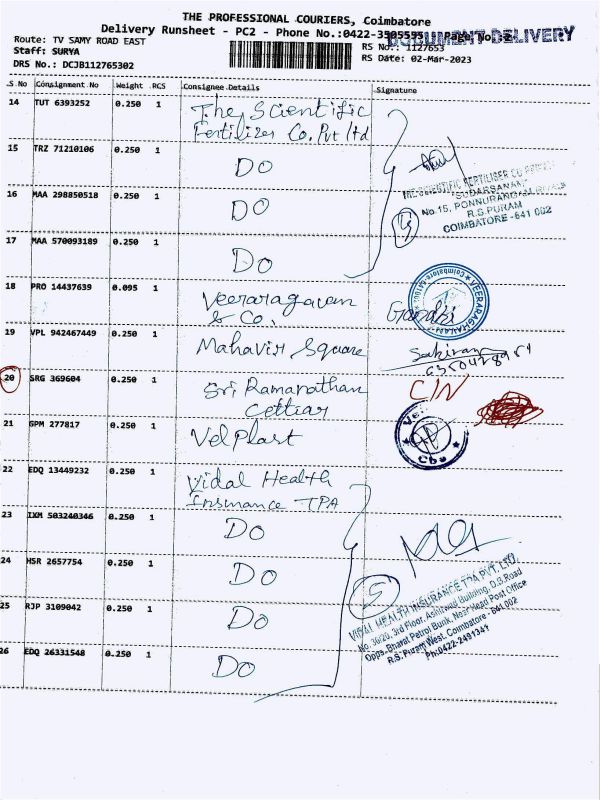 THE PROFESSIONAL COURIERS, Coimbatore
Delivery Runsheet - PC2 - Phone No.:0422-3505555 Page No. 2
DOCUMENT DELIVERY
Route: TV SAMY ROAD EAST
RS No.: 1127653
Staff: SURYA
RS Date: 02-Mar-2023
DRS No.: DCJB112765302
S.No Consignment No Weight RCS Consignee Details Signature
14 TUT 6393252 0.250 1 The Scientific
Fertilizer Co. Pvt ltd
15 TRZ 71210106 0.250 1 DO
THE SCIENTIFIC FERTILISER CO PRIVATE
"SUDARSANAM"
16 MAA 298850518 0.250 1 DO
No.15, PONNURANGAM ROAD
R.S.PURAM
COIMBATORE - 641 002
4
17 MAA 570093189 0.250 1 DO
18 PRO 14437639 0.095 1 Veeraragavan
& Co.
Gandhi
19 VPL 942467449 0.250 1 Mahavir Square
20 SRG 369604 0.250 1 Sri Ramanathan
Cettiar
C/N
21 GPM 277817 0.250 1 VelPlast
22 EDQ 13449232 0.250 1 Vidal Health
Insurance TPA
23 IXM 503240346 0.250 1 DO
24 HSR 2657754 0.250 1 DO
5
VIDAL HEALTH INSURANCE TPA PVT. LTD.
No. 30/20, 3rd Floor, Building, D.B.Road
Opp. Bharat Petrol Bunk, Near Head Post Office
R.S. Puram West, Coimbatore - 641 002
Ph:0422-2491341
25 RJP 3109042 0.250 1 DO
26 EDQ 26331548 0.250 1 DO